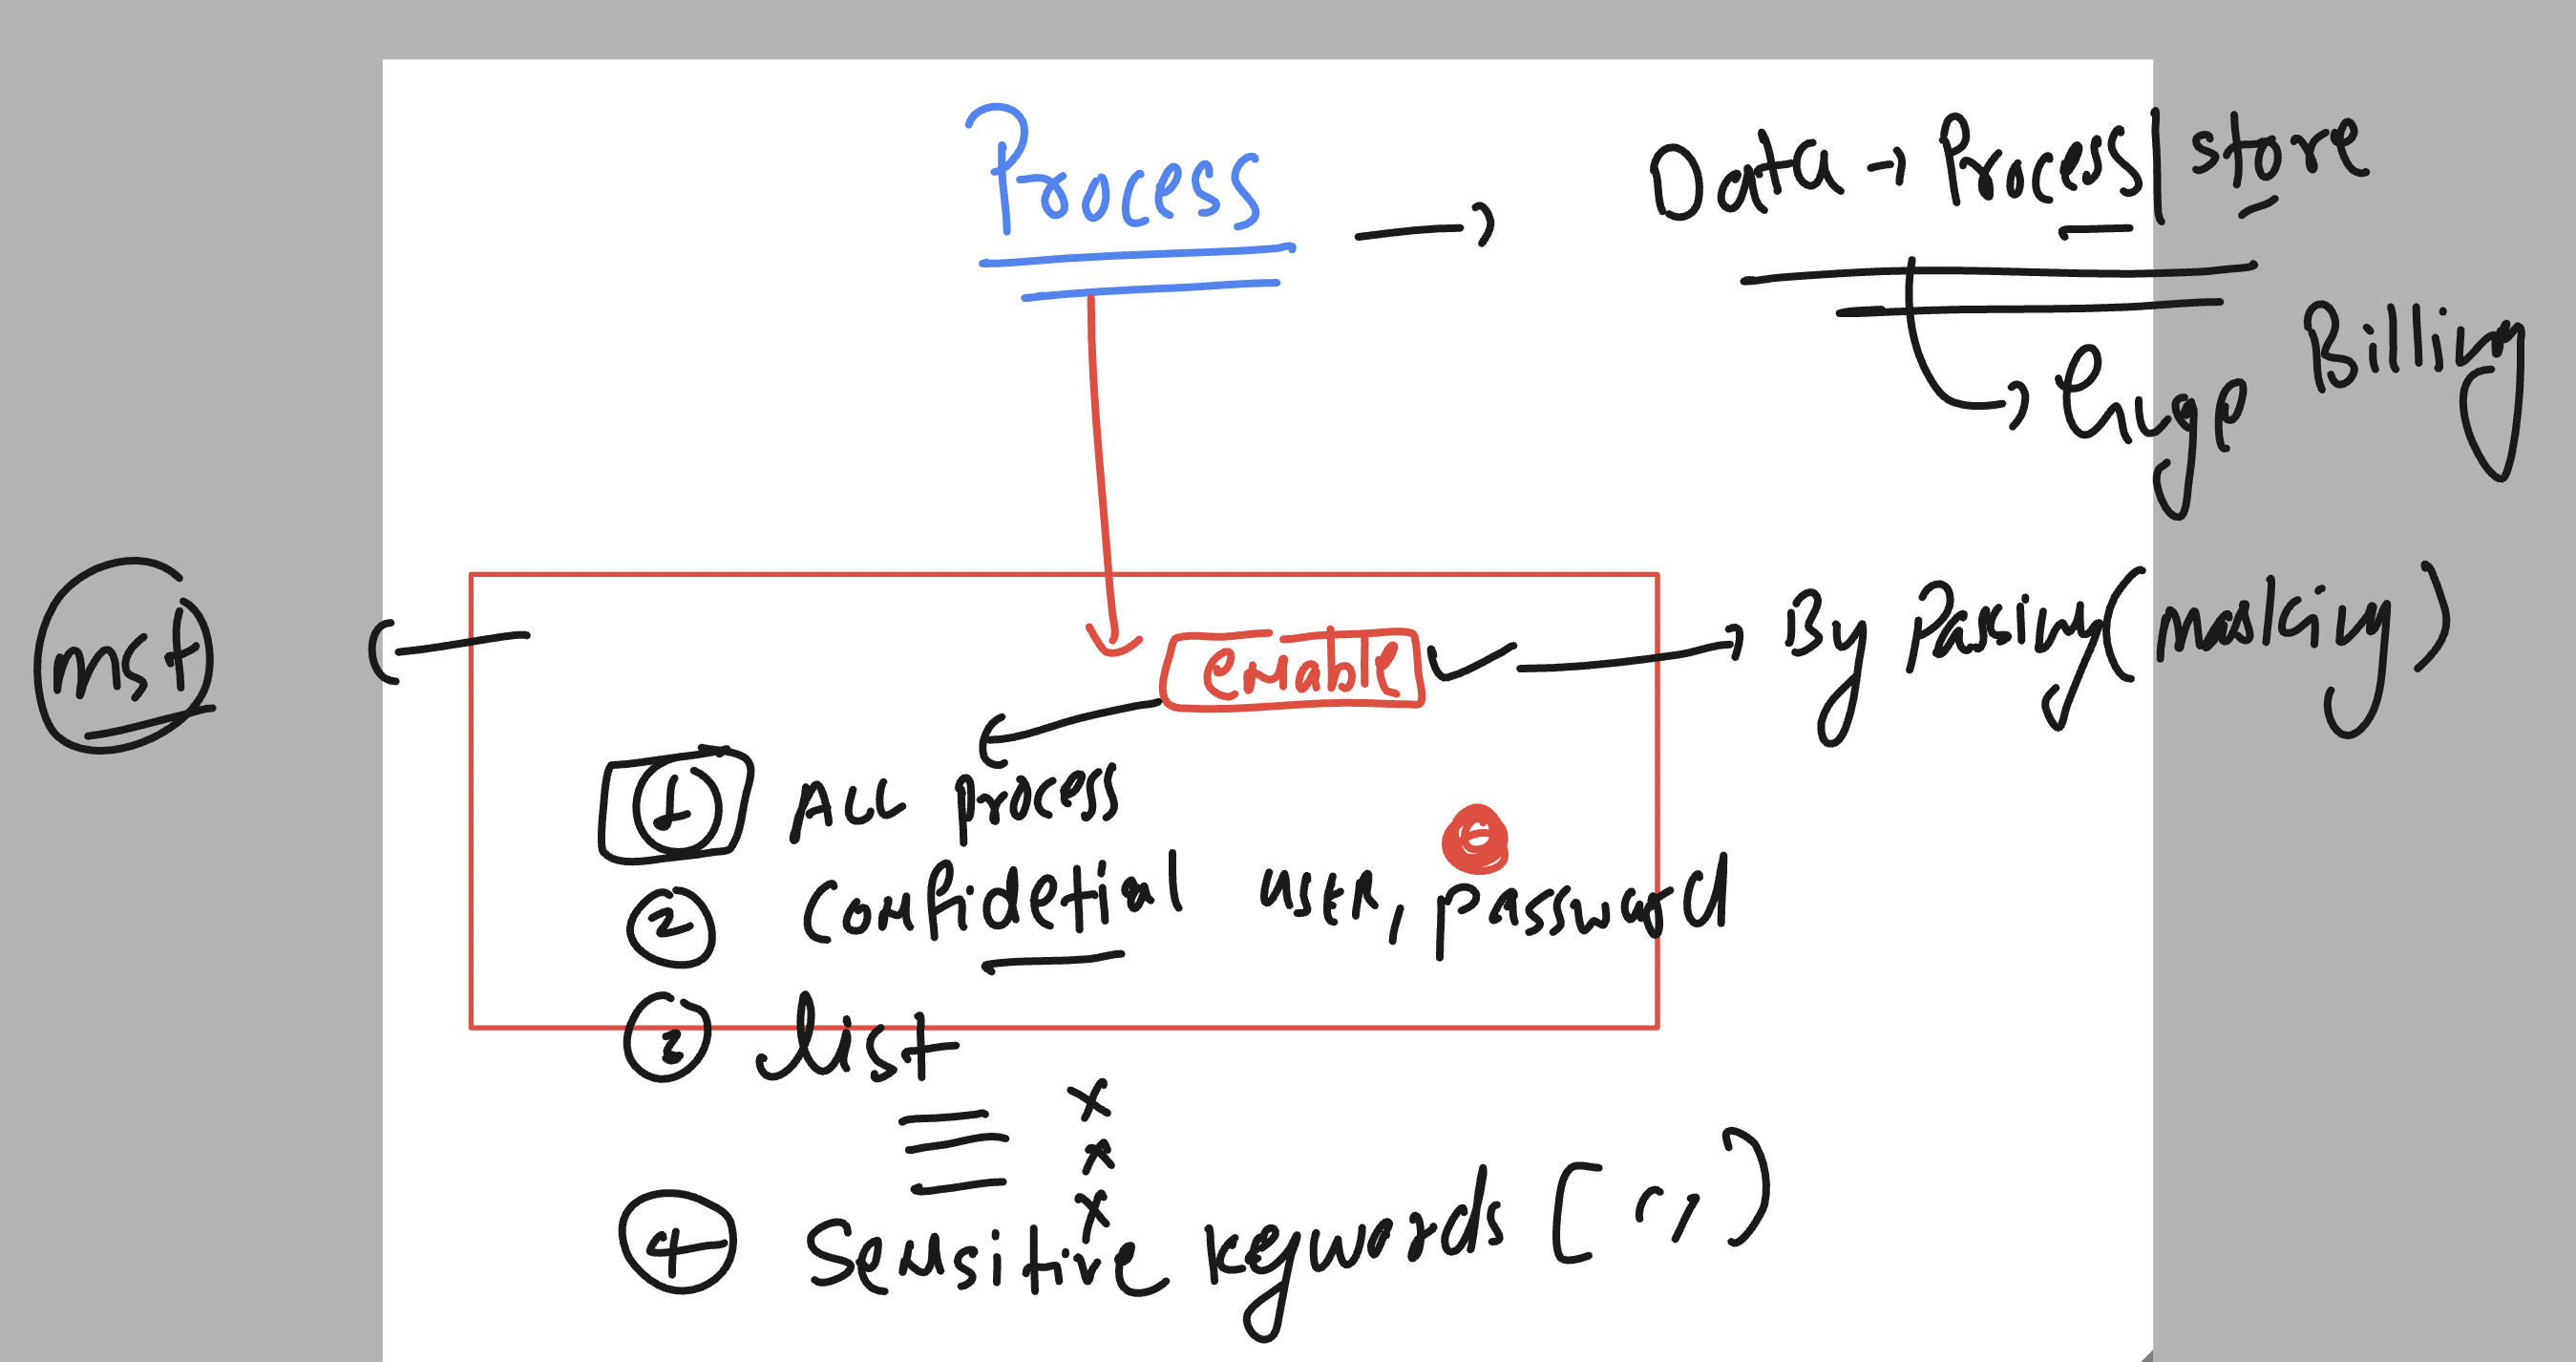 Process → Data → Process | store
→ huge Billing
mst
enable ✓ → By Passing (masking)
1 ALL process
2 Confidetial user, password
3 list
x
x
x
4 Sensitive keywords [ , )